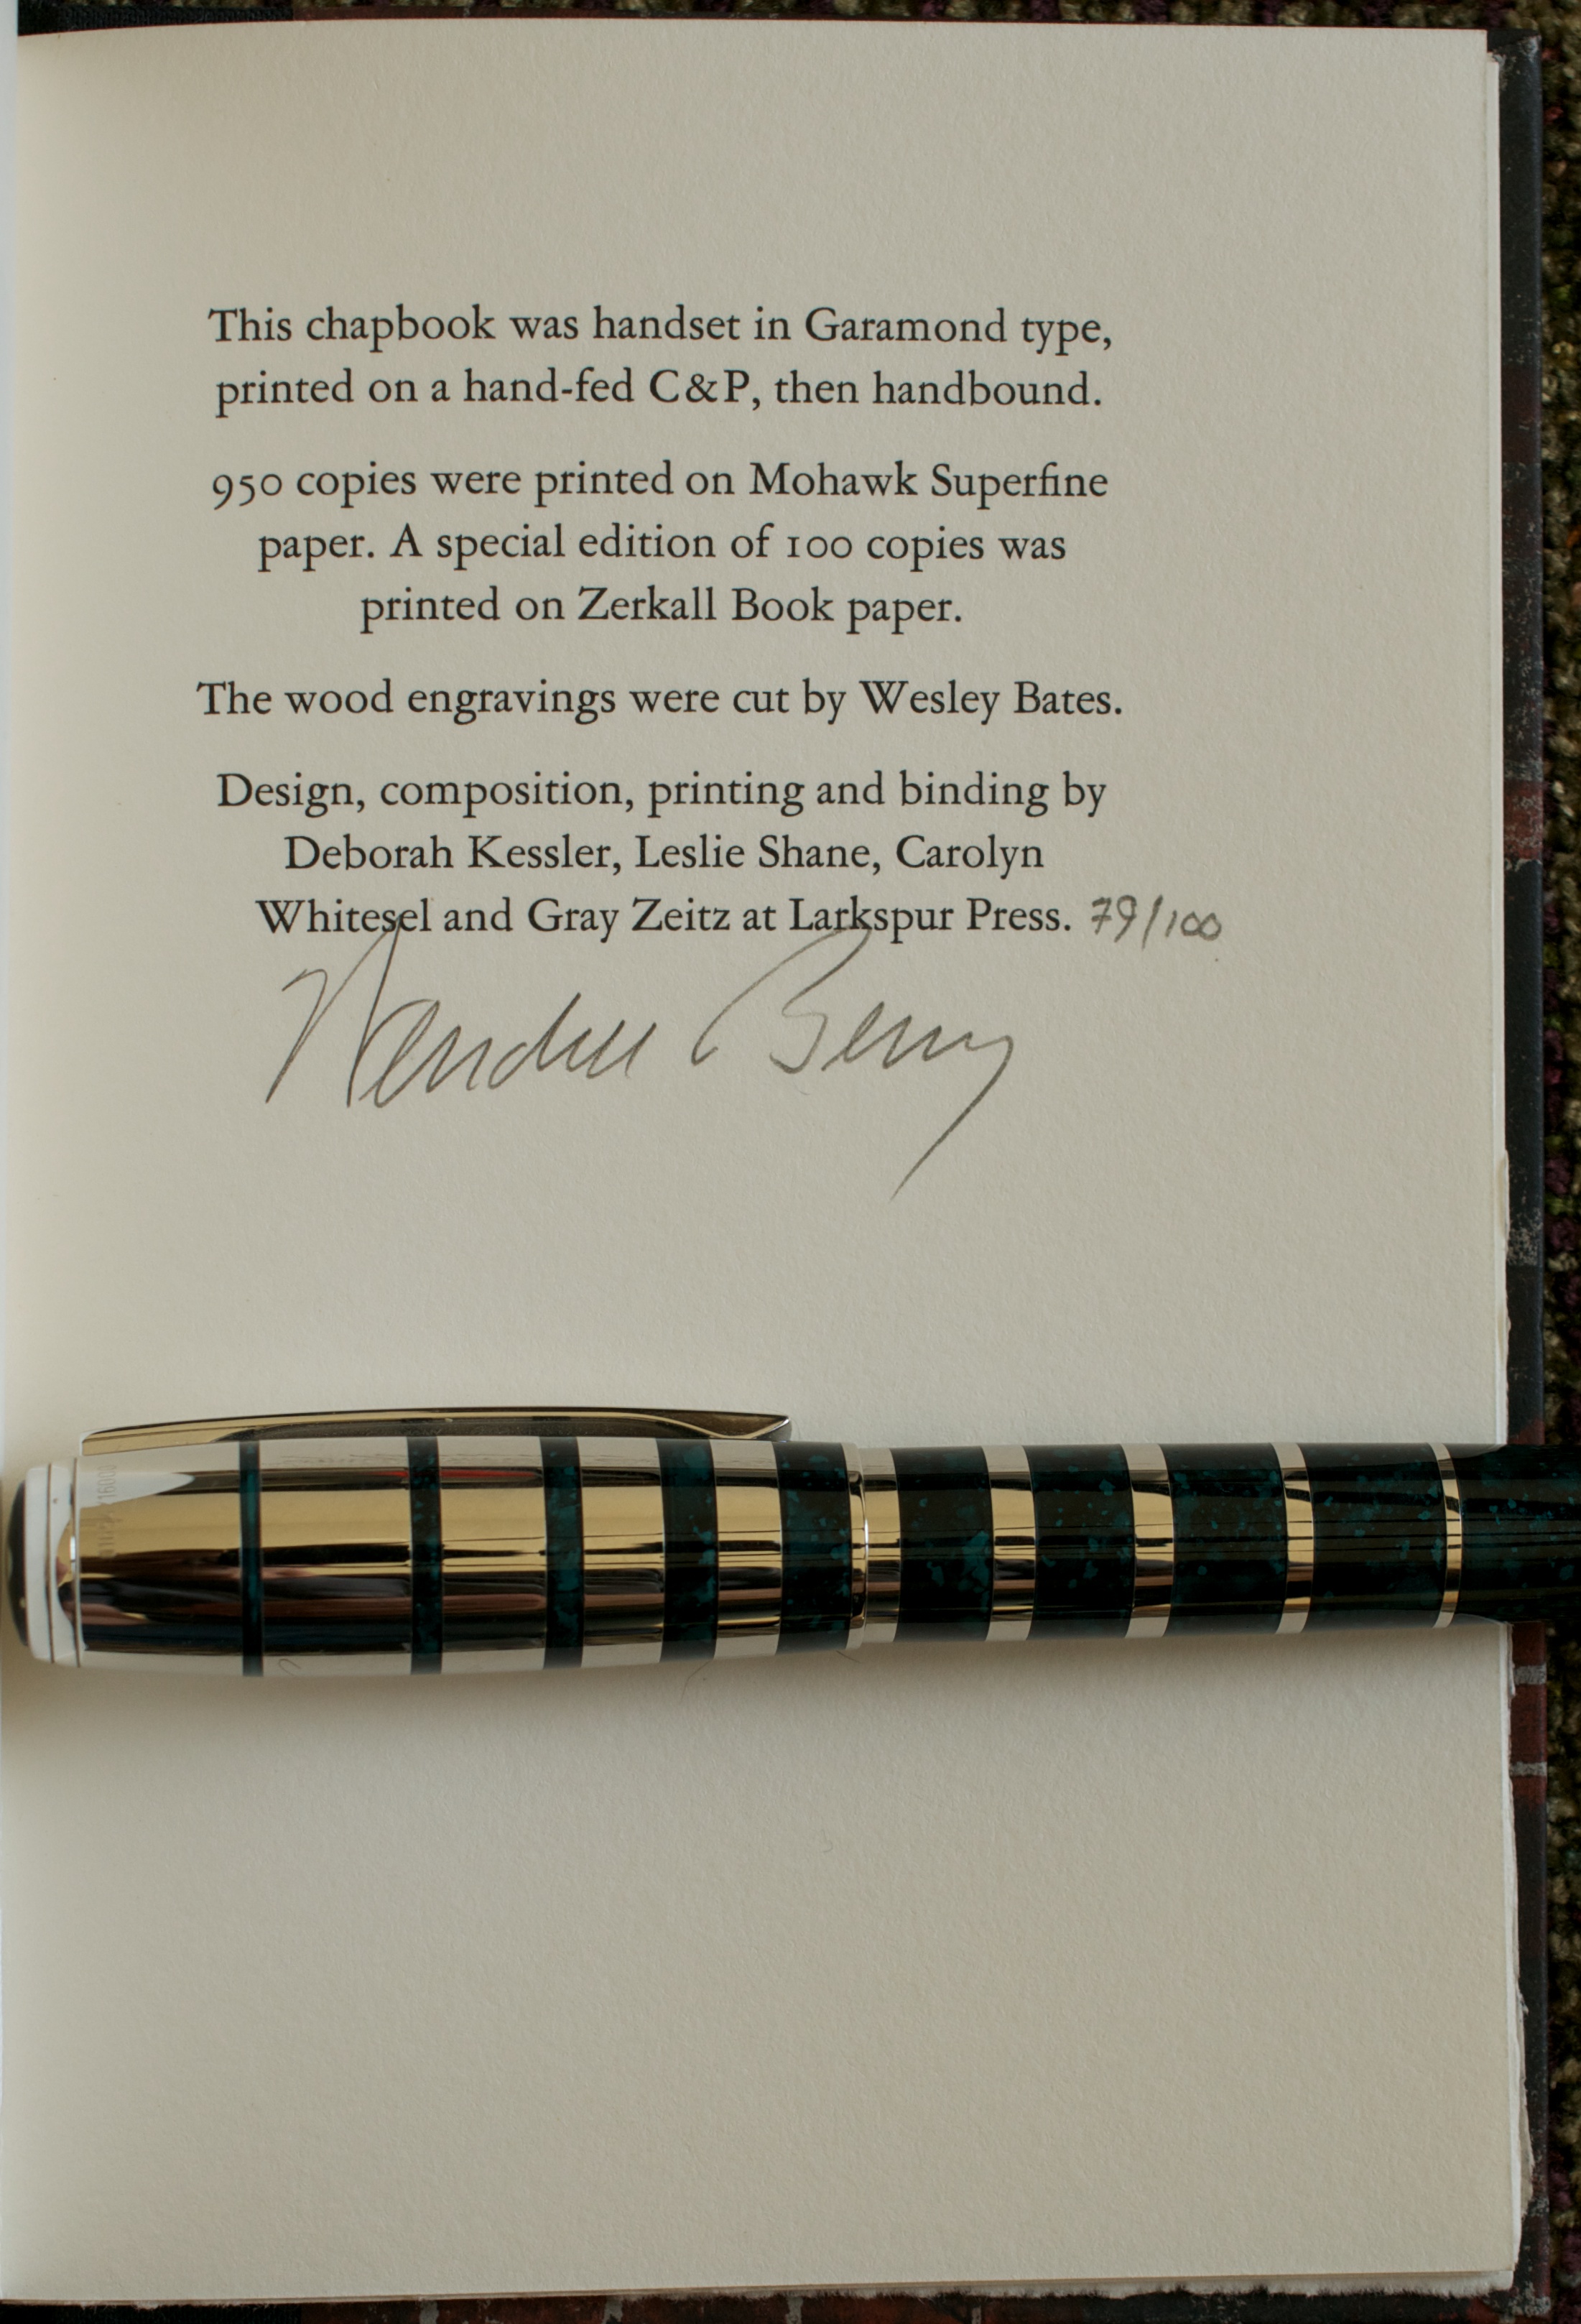 This chapbook was handset in Garamond type,
printed on a hand-fed C&P, then handbound.
950 copies were printed on Mohawk Superfine
paper. A special edition of 100 copies was
printed on Zerkall Book paper.
The wood engravings were cut by Wesley Bates.
Design, composition, printing and binding by
Deborah Kessler, Leslie Shane, Carolyn
Whitesel and Gray Zeitz at Larkspur Press. 79/100
Wendell Berry